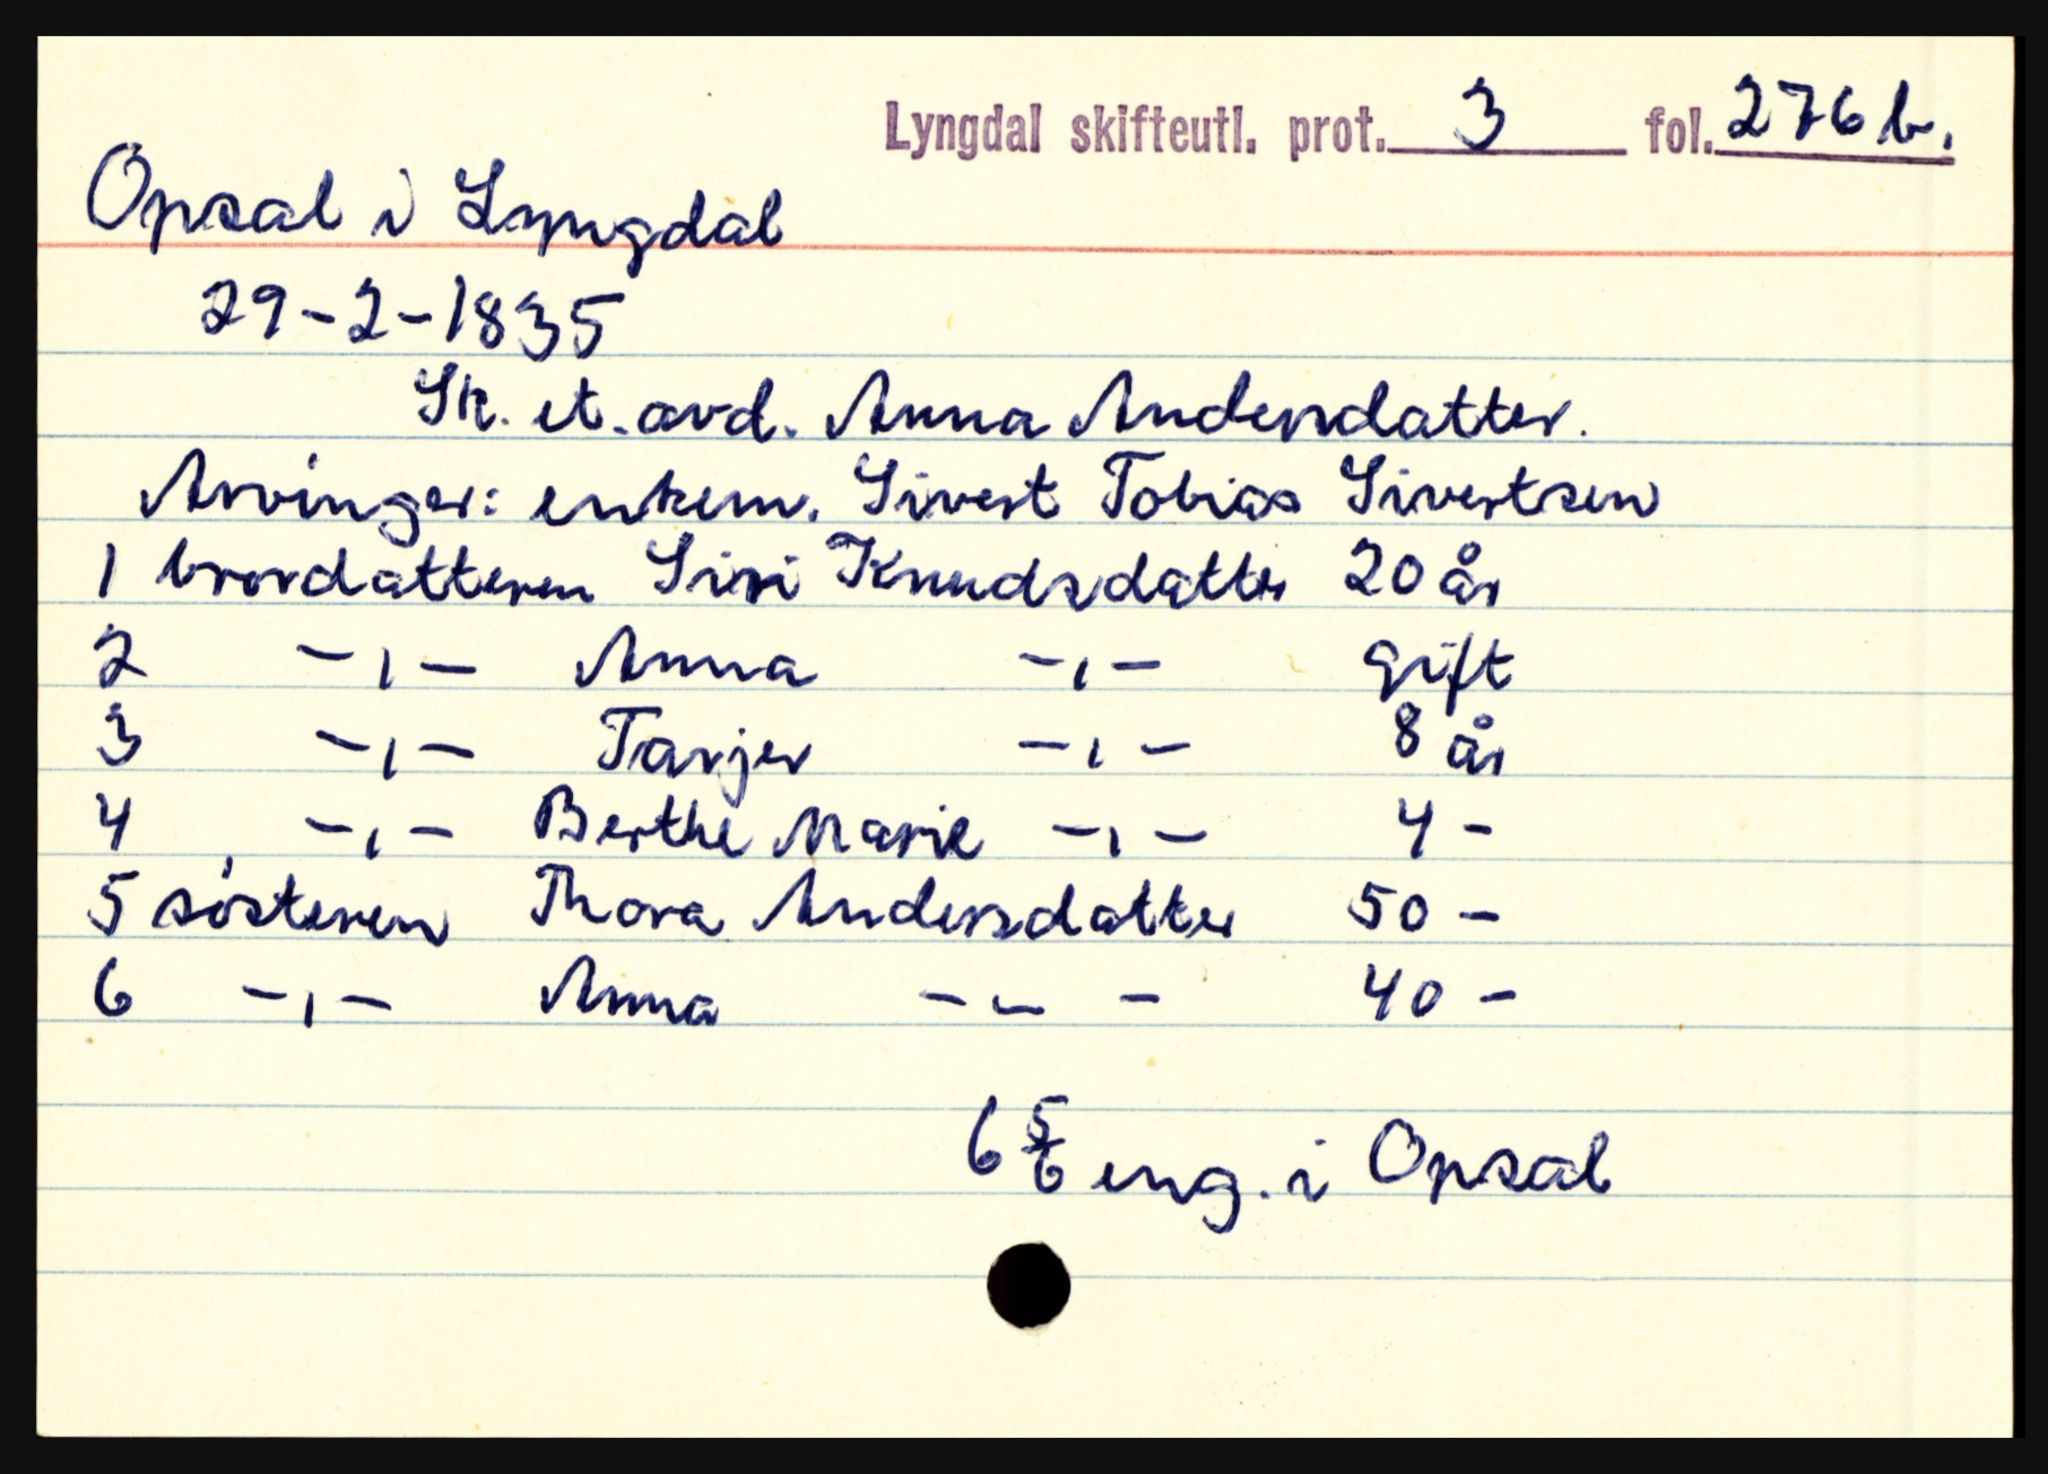 Lyngdal skifteutl. prot. 3 fol. 276 b.
Opsal i Lyngdal
29-2-1835
Sk. et. avd. Anna Andersdatter.
Arvinger: enkem. Sivert Tobias Sivertsen
1 brordatteren Siri Knudsdatter 20 år
2 -,- Anna -,- gift
3 -,- Tarjer -,- 8 år
4 -,- Berthe Marie -,- 4 -
5 sósteren Thora Andersdatter 50 -
6 -,- Anna - - - 40 -
6 5/6 eng. i Opsal